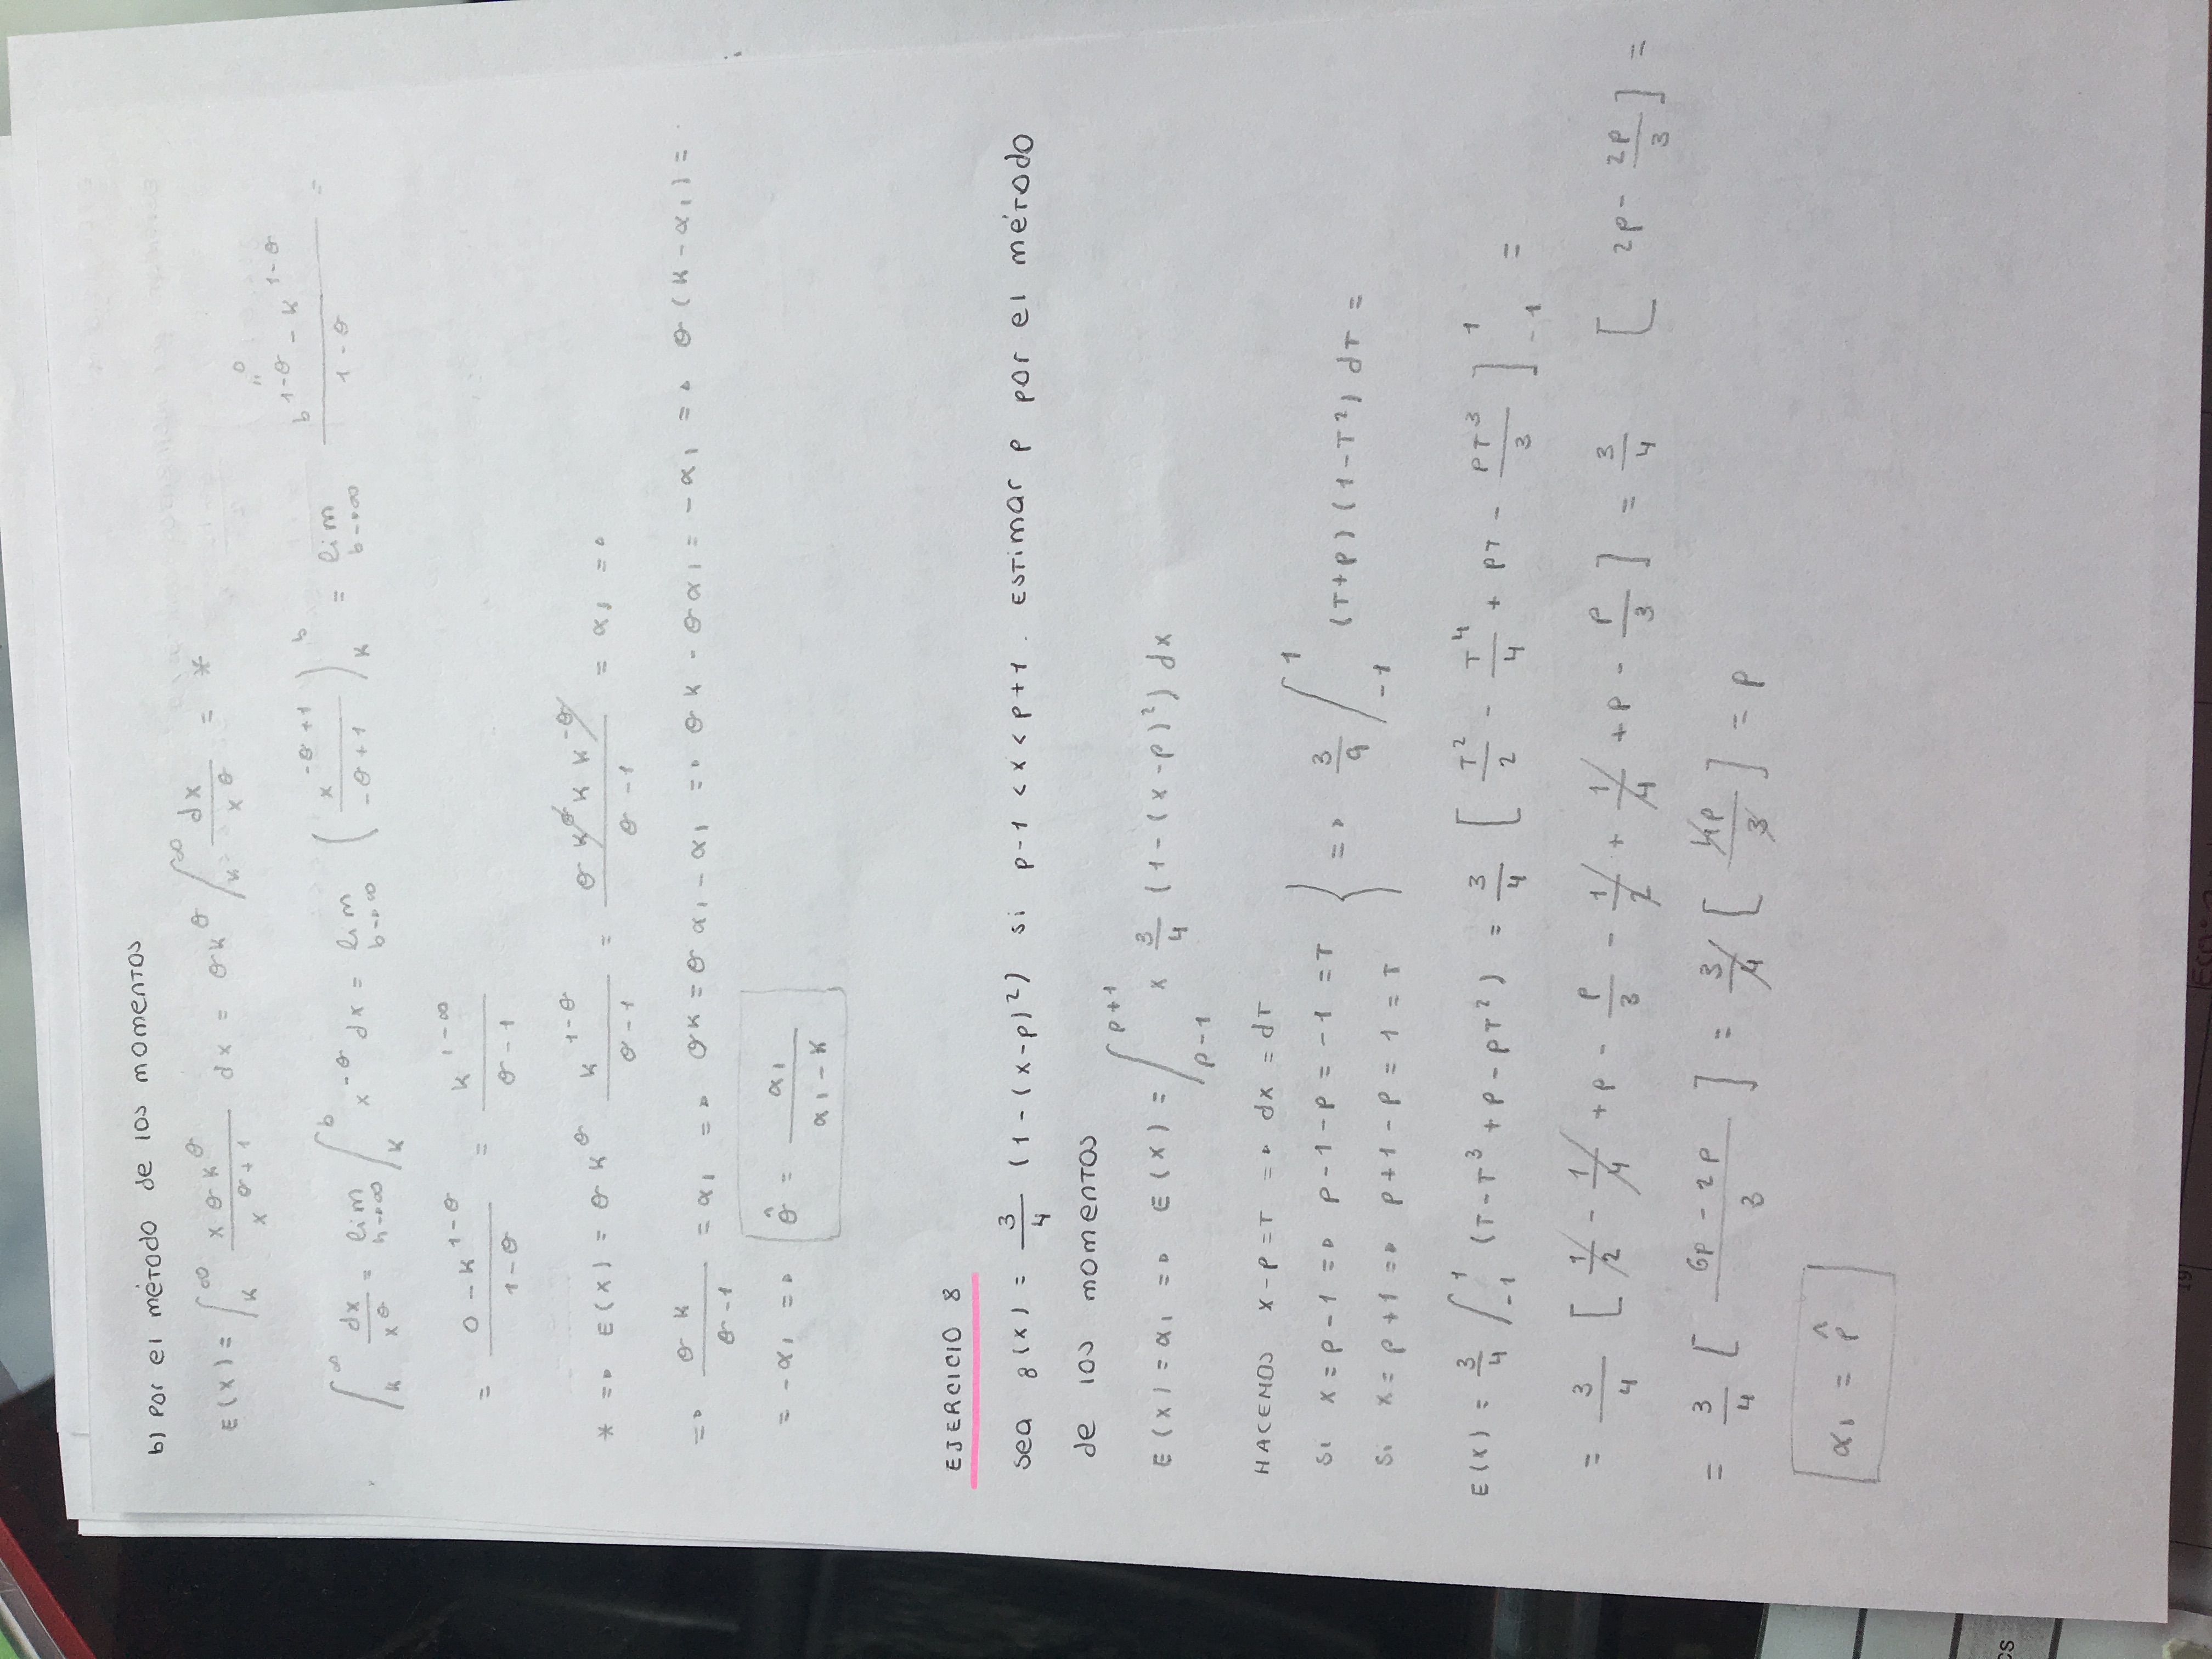 b) Por el método de los momentos
E(x) = ∫_K^∞ (x θ K^θ)/(x^(θ+1)) dx = θK^θ ∫_K^∞ dx/x^θ = *
∫_K^∞ dx/x^θ = lim_(h→∞) ∫_K^b x^(-θ) dx = lim_(b→∞) (x^(-θ+1)/(-θ+1))_K^b = lim_(b→∞) (b^(1-θ) - K^(1-θ))/(1-θ) =
" 0
= (0 - K^(1-θ))/(1-θ) = K^(1-∞)/(θ-1)
* => E(x) = θ K^θ K^(1-θ)/(θ-1) = (θ K^θ K K^(-θ))/(θ-1) = α1 =>
=> θK/(θ-1) = α1 => θK = θα1 - α1 => θK - θα1 = -α1 => θ(K-α1) =
= -α1 => θ̂ = α1/(α1-K)
EJERCICIO 8
Sea g(x) = 3/4 (1-(x-p)²) si p-1 < x < p+1. Estimar p por el método
de los momentos
E(x) = α1 => E(x) = ∫_(p-1)^(p+1) x 3/4 (1-(x-p)²) dx
HACEMOS x-p = T => dx = dT
Si x = p-1 => p-1-p = -1 = T
Si x = p+1 => p+1-p = 1 = T } => 3/9 ∫_-1^1 (T+p)(1-T²) dT =
E(x) = 3/4 ∫_-1^1 (T-T³+p-pT²) = 3/4 [T²/2 - T⁴/4 + pT - pT³/3]_-1^1 =
= 3/4 [1/2 - 1/4 + p - p/3 - 1/2 + 1/4 + p - p/3] = 3/4 [2p - 2p/3] =
= 3/4 [(6p-2p)/3] = 3/4 [4p/3] = p
α1 = p̂
cs
19